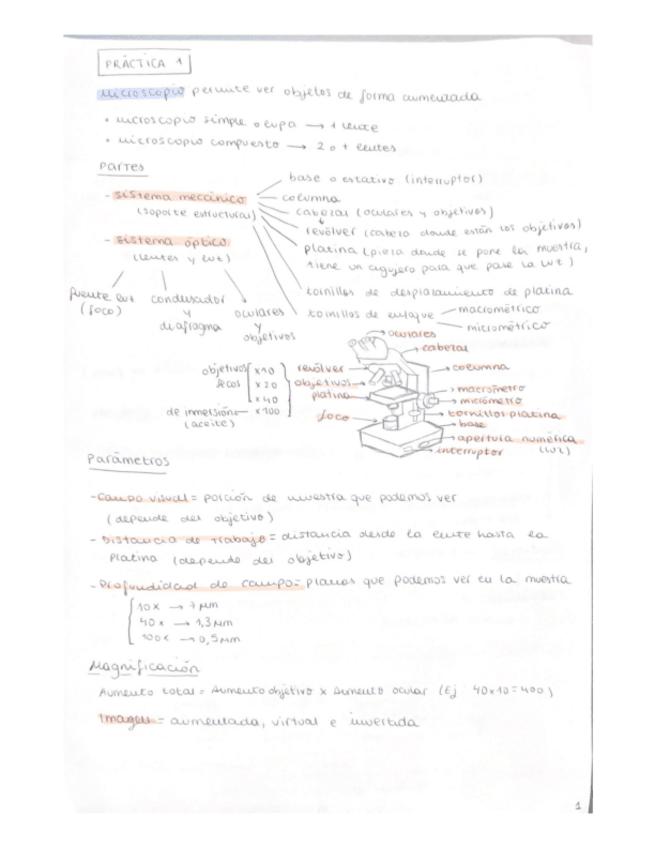 PRÁCTICA 1
Microscopio permite ver objetos de forma aumentada
• microscopio simple o lupa → 1 lente
• microscopio compuesto → 2 o + lentes
Partes
- sistema mecánico
(soporte estructural)
base o estativo (interruptor)
columna
cabezal (oculares y objetivos)
revólver (cabeza donde están los objetivos)
platina (pieza donde se pone la muestra,
tiene un agujero para que pase la luz)
tornillos de desplazamiento de platina
tornillos de enfoque
macrométrico
micrométrico
- sistema óptico
(lentes y luz)
fuente luz
(foco)
condensador
y
diafragma
oculares
y
objetivos
objetivos
secos
x10
x20
x40
de inmersión
(aceite)
x100
oculares
cabezal
revólver
objetivos
platina
foco
columna
macrómetro
micrómetro
tornillos platina
base
apertura numérica
(luz)
interruptor
Parámetros
- Campo visual = porción de muestra que podemos ver
(depende del objetivo)
- Distancia de trabajo = distancia desde la lente hasta la
platina (depende del objetivo)
- Profundidad de campo = planos que podemos ver en la muestra
10x → 7 µm
40x → 1,3 µm
100x → 0,5 µm
Magnificación
Aumento total = Aumento objetivo x Aumento ocular (Ej 40x10=400)
Imagen = aumentada, virtual e invertida
1